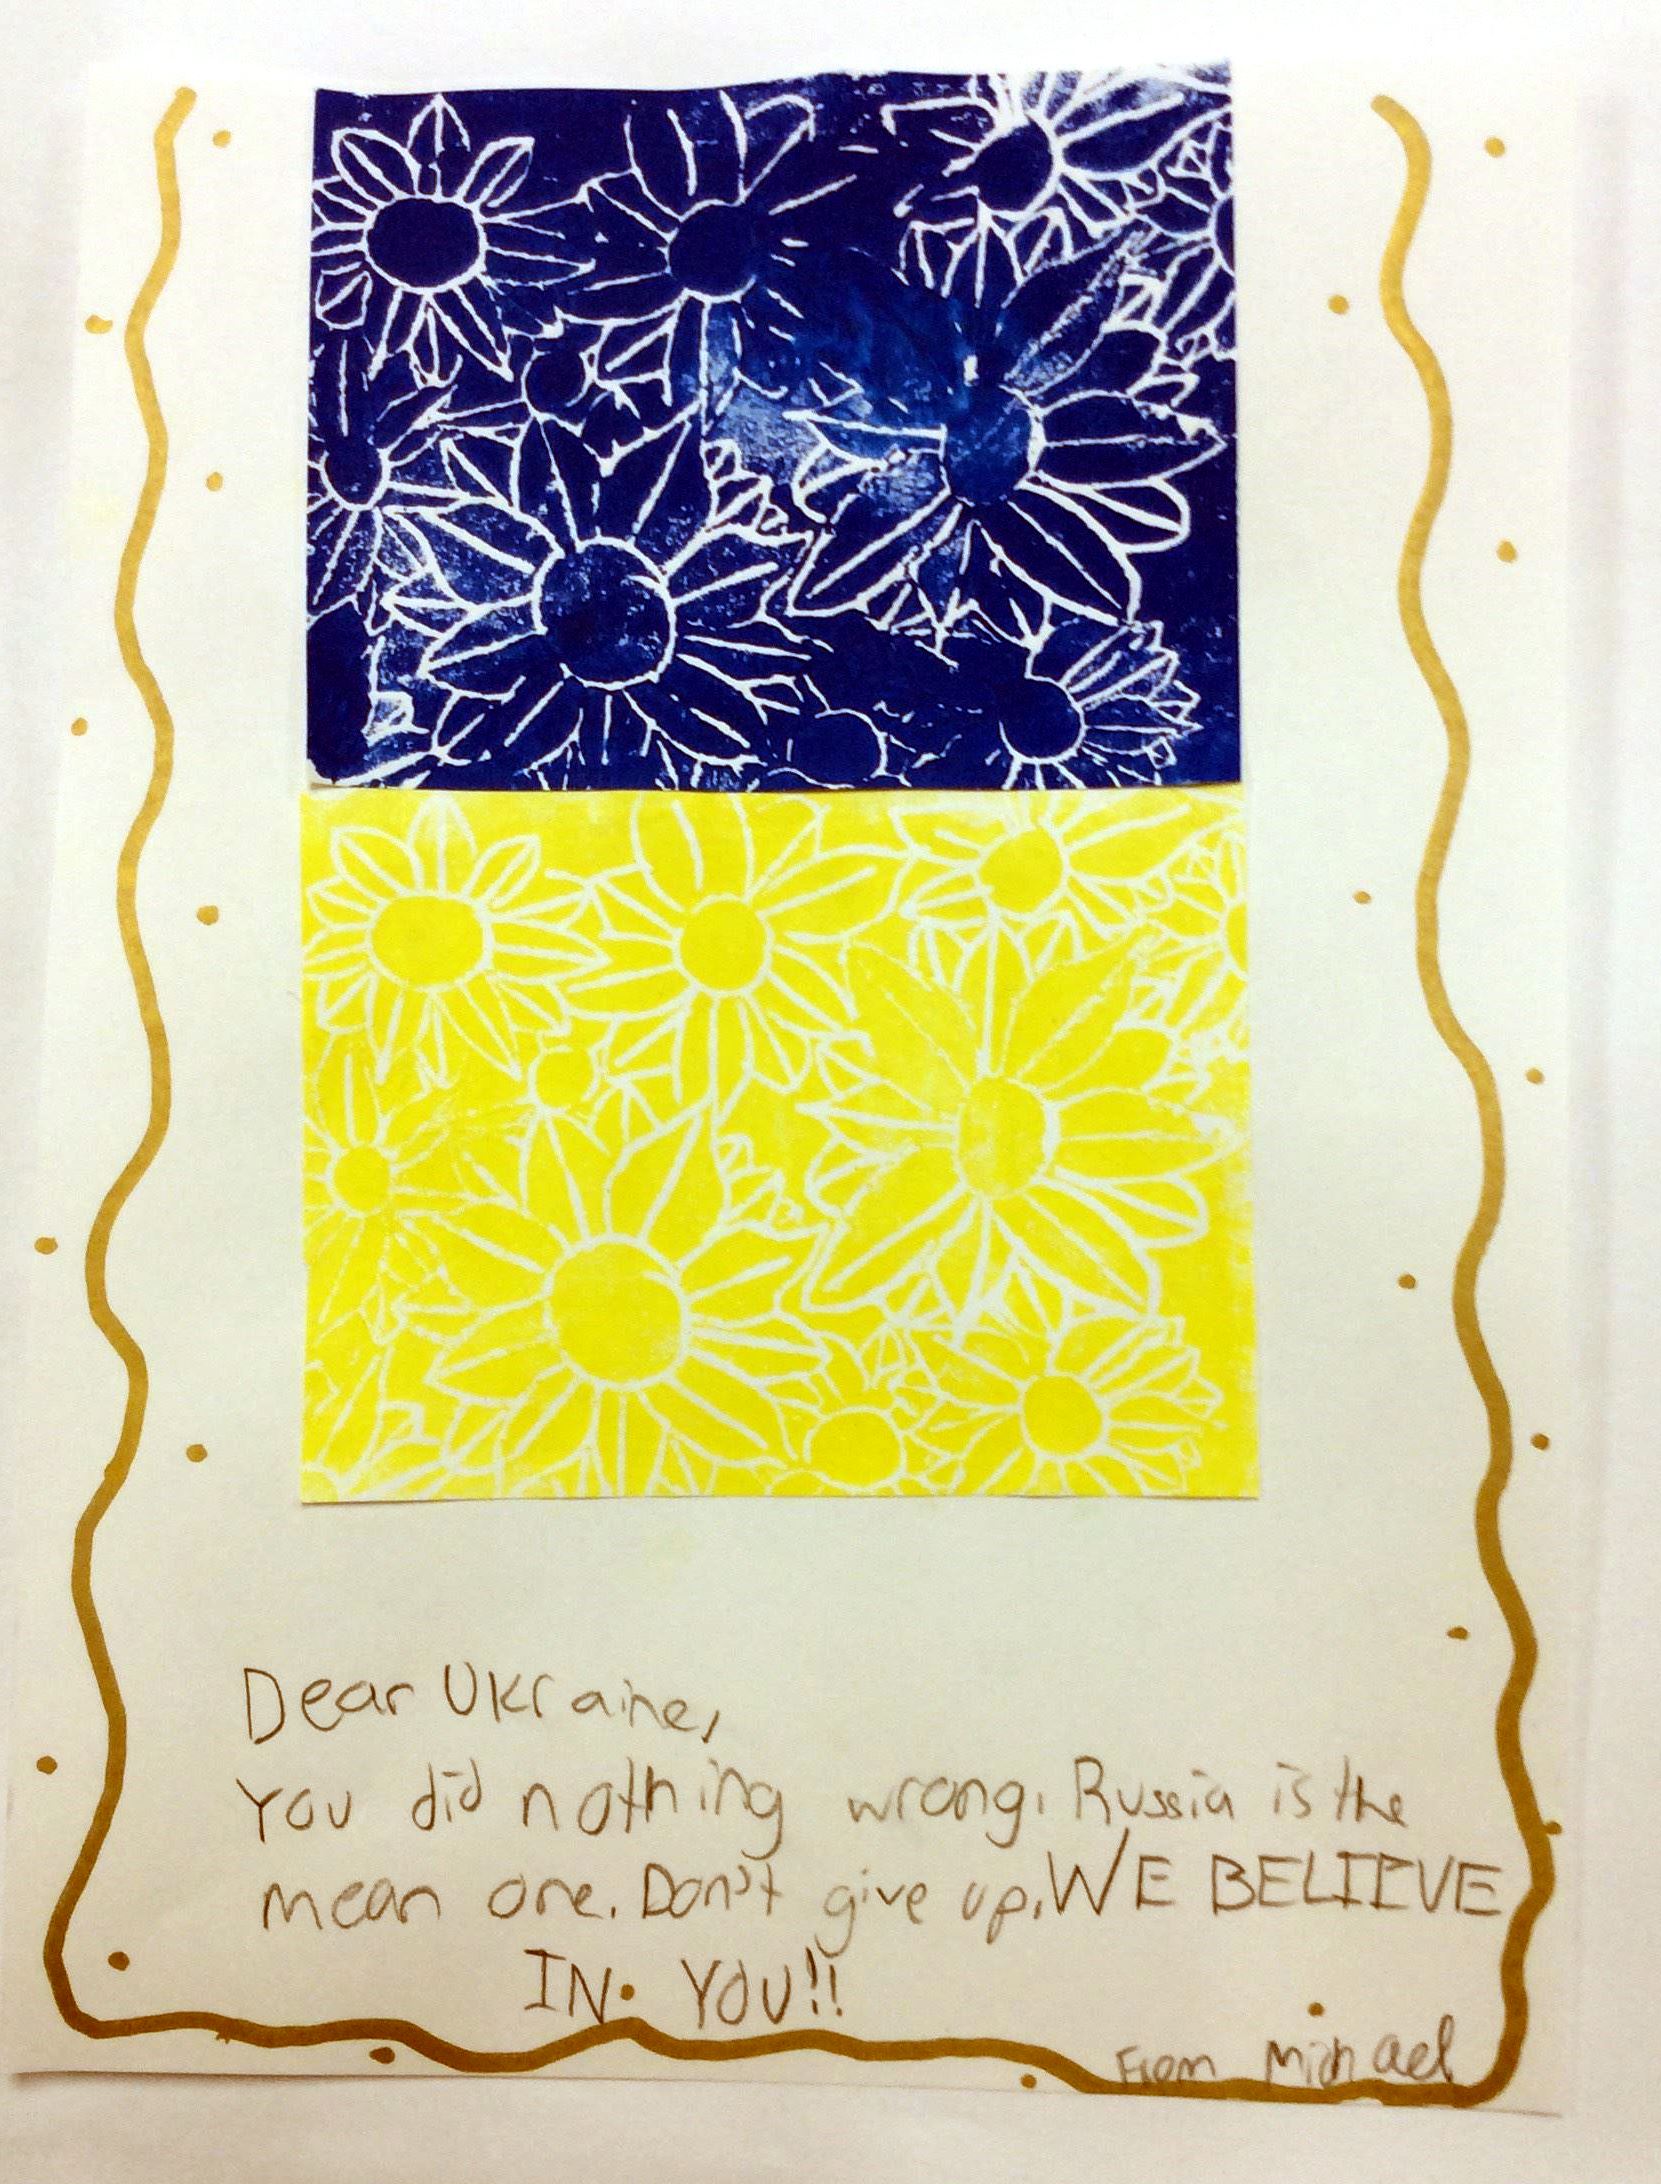 Dear Ukraine,
You did nothing wrong. Russia is the
mean one. Don't give up. WE BELIEVE
IN YOU!!
From Michael